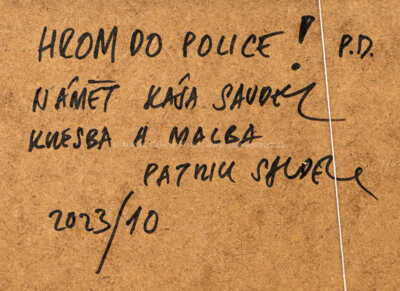 HROM DO POLICE! P.D.
NÁMĚT KÁJA SAUDEK
KRESBA A MALBA
PATRIK SAUDEK
2023/10